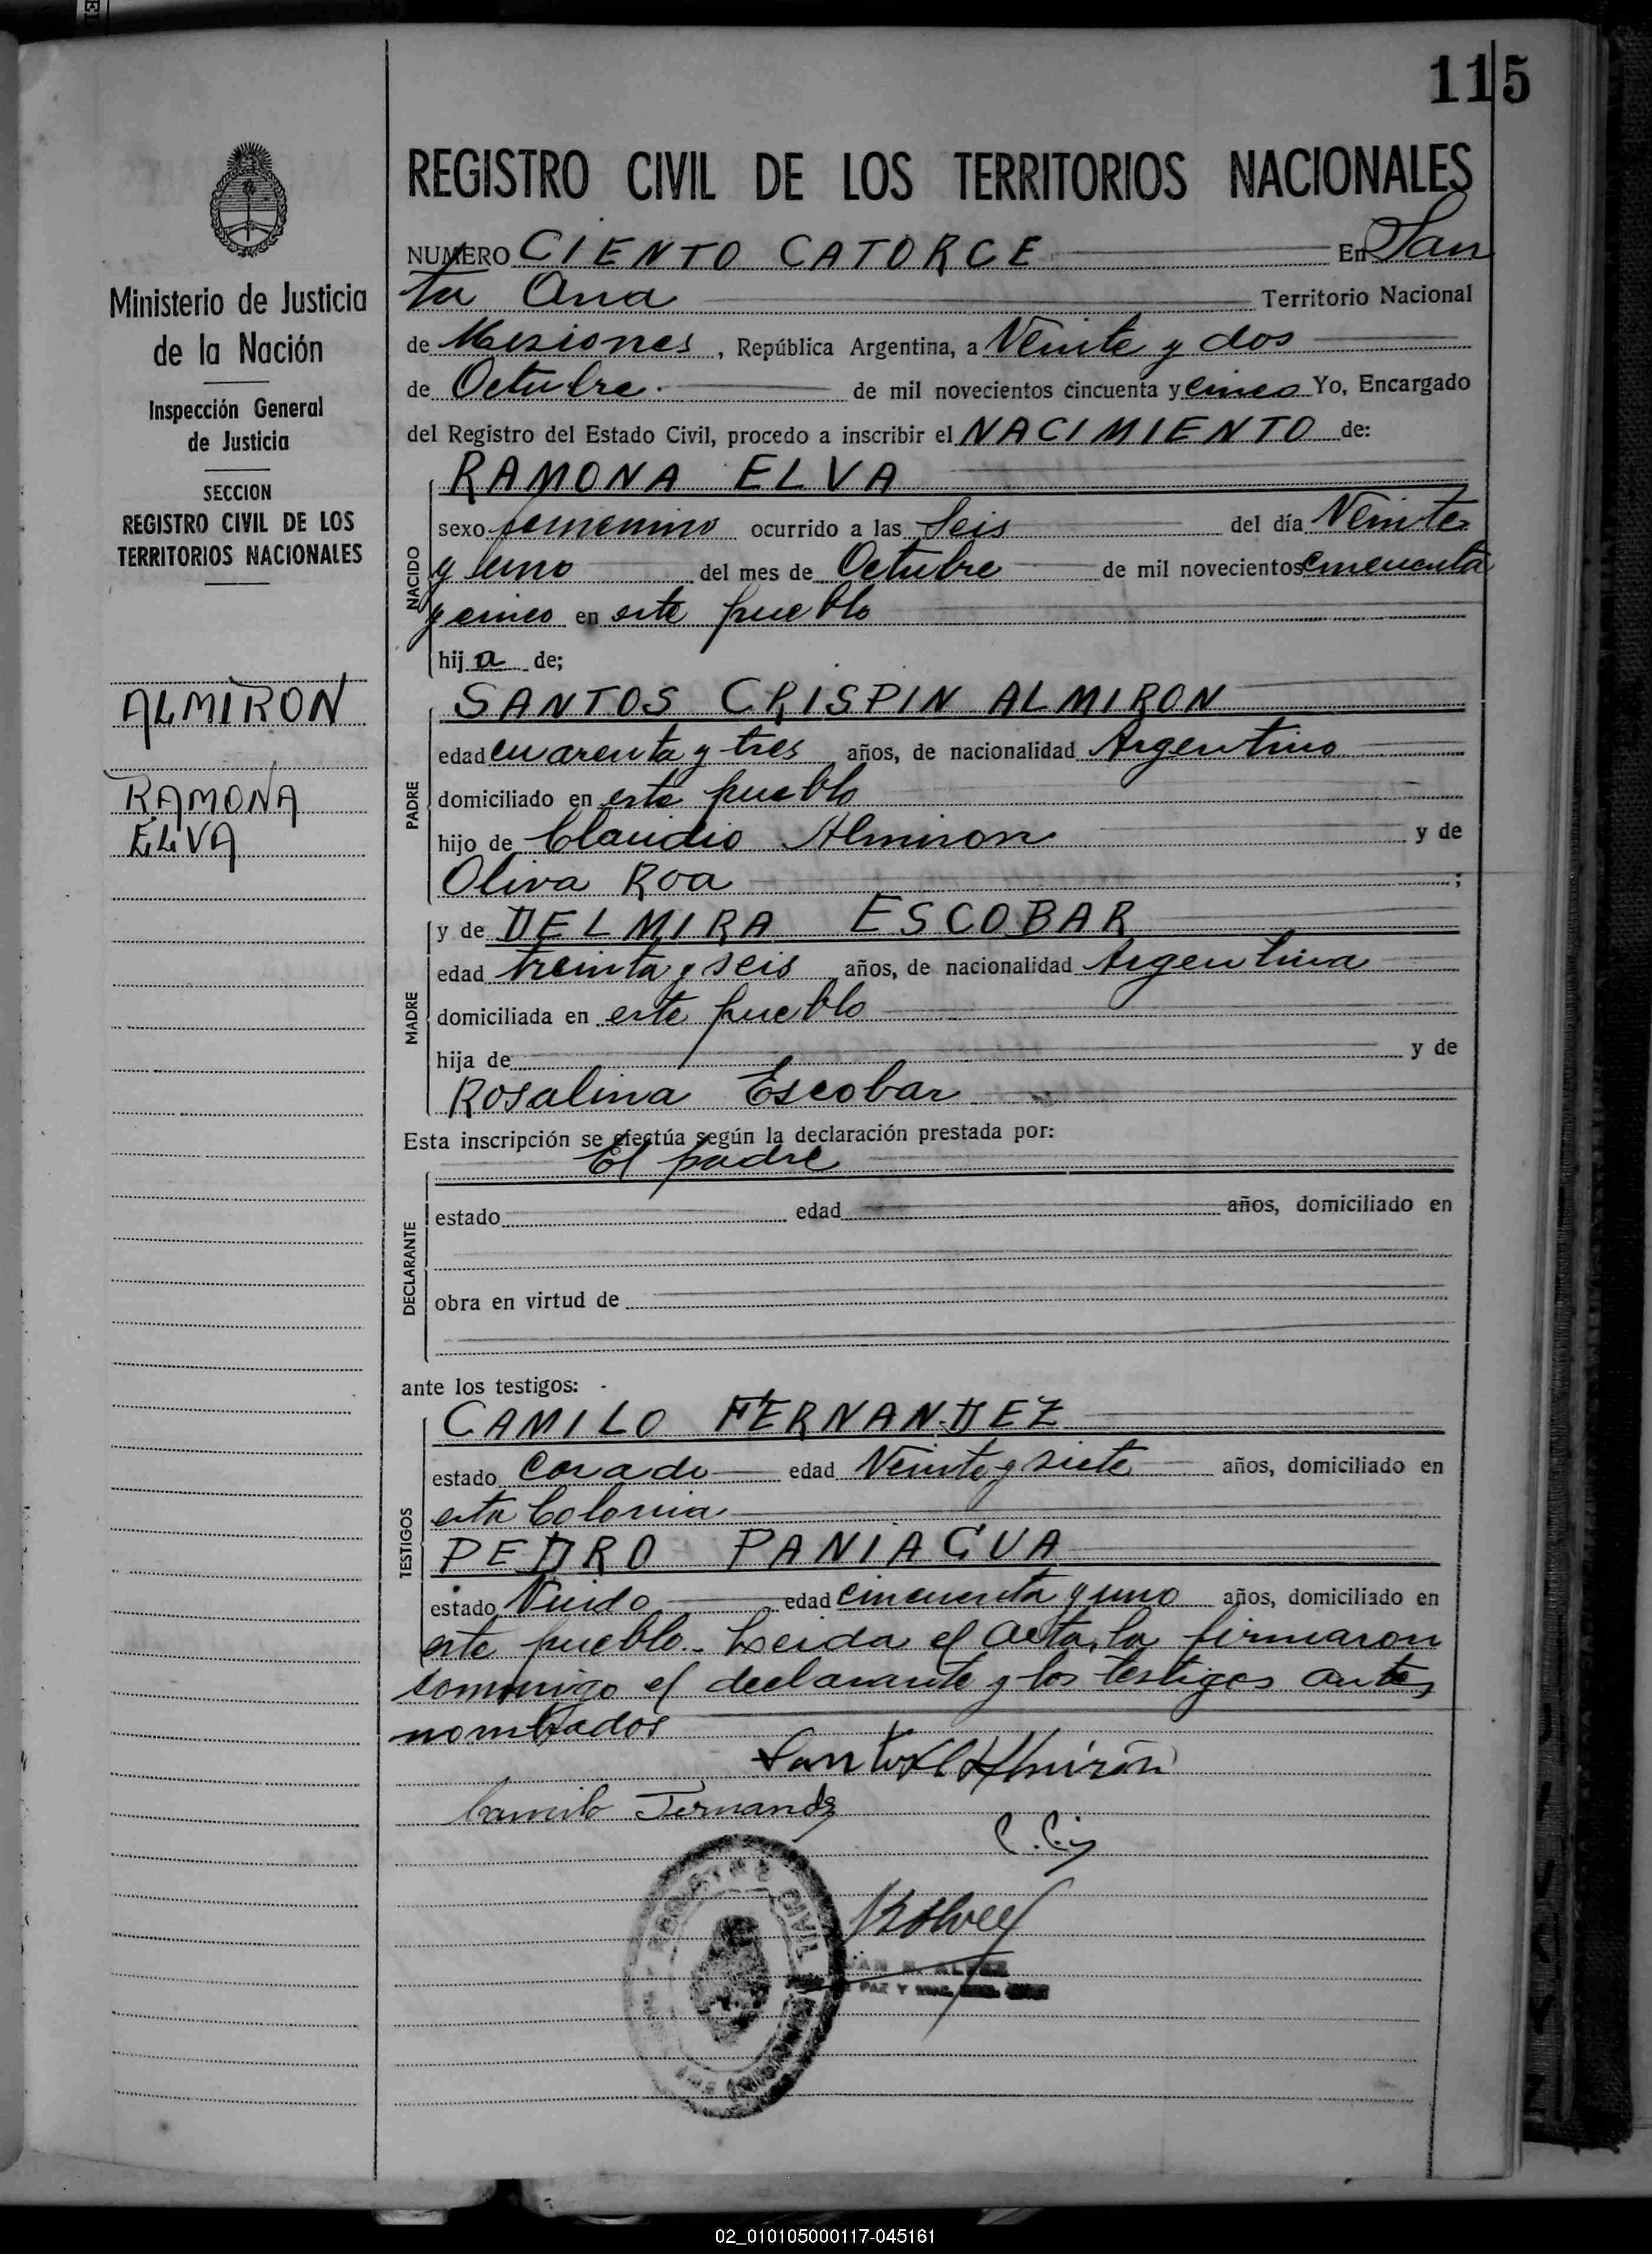 115
REGISTRO CIVIL DE LOS TERRITORIOS NACIONALES
Ministerio de Justicia
de la Nación
Inspección General
de Justicia
SECCION
REGISTRO CIVIL DE LOS
TERRITORIOS NACIONALES
ALMIRON
RAMONA
ELVA
NUMERO CIENTO CATORCE En San
ta Ana Territorio Nacional
de Misiones, República Argentina, a Veinte y dos
de Octubre. de mil novecientos cincuenta y cinco Yo, Encargado
del Registro del Estado Civil, procedo a inscribir el NACIMIENTO de:
NACIDO
RAMONA ELVA
sexo femenino ocurrido a las Seis del día Veinte
y uno del mes de Octubre de mil novecientos cincuenta
y cinco en este pueblo
hij a de;
PADRE
SANTOS CRISPIN ALMIRON
edad cuarenta y tres años, de nacionalidad Argentino
domiciliado en este pueblo
hijo de Claudio Almiron y de
Oliva Roa ;
MADRE
y de DELMIRA ESCOBAR
edad treinta y seis años, de nacionalidad Argentina
domiciliada en este pueblo
hija de y de
Rosalina Escobar
Esta inscripción se efectúa según la declaración prestada por:
El padre
DECLARANTE
estado edad años, domiciliado en
obra en virtud de
ante los testigos:
TESTIGOS
CAMILO FERNANDEZ
estado Casado edad Veinte y siete años, domiciliado en
esta Colonia
PEDRO PANIAGUA
estado Viudo edad cincuenta y uno años, domiciliado en
este pueblo.- Leida el acta, la firmaron
conmigo el declarante y los testigos antes
nombrados
Santos C Almirón
Camilo Fernandez
REGISTRO CIVIL
PAZ Y
02_010105000117-045161